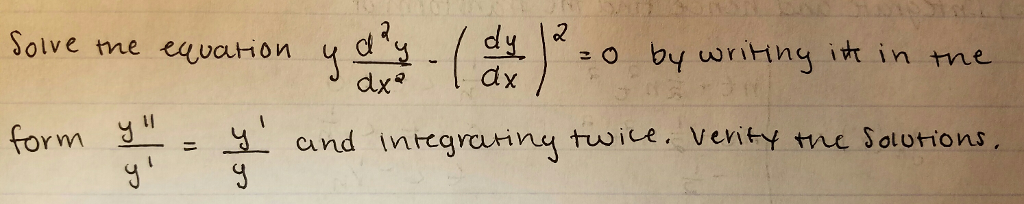 Solve the equation y d²y/dx² - (dy/dx)² = 0 by writing it in the
form y''/y' = y'/y and integrating twice. Verify the solutions.